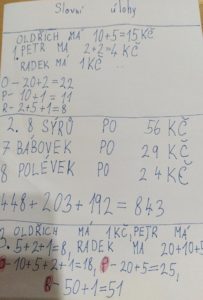 Slovní úlohy
OLDŘICH MÁ 10+5=15 KČ
1. PETR MÁ 2+2=4 KČ
RADEK MÁ 1 KČ..
O-20+2=22
P-10+1=11
R-2+5+1=8
2. 8 SÝRŮ PO 56 KČ
7 BÁBOVEK PO 29 KČ
8 POLÉVEK PO 24 KČ
448+203+192=843
OLDŘICH MÁ 1 KČ, PETR MÁ
3. 5+2+1=8, RADEK MÁ 20+10+5
O-10+5+2+1=18, P-20+5=25,
R-50+1=51